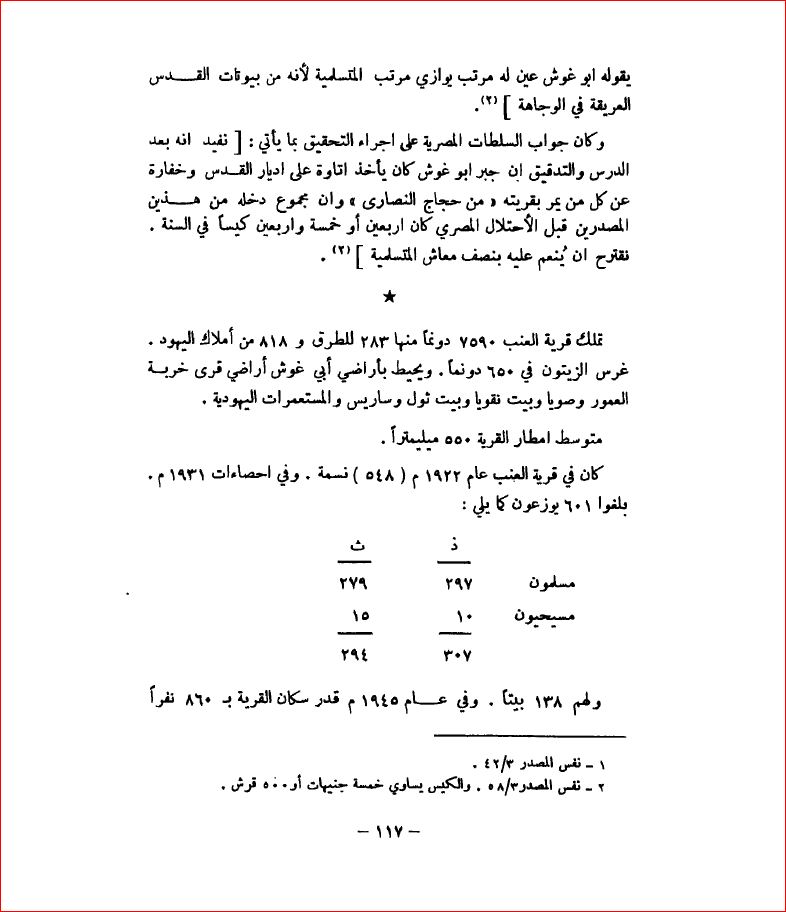 يقوله ابو غوش عين له مرتب يوازي مرتب المتسلمية لأنه من بيوتات القدس
العريقة في الوجاهة ] (٢).
وكان جواب السلطات المصرية على اجراء التحقيق بما يأتي : [ نفيد انه بعد
الدرس والتدقيق ان جبر ابو غوش كان يأخذ اتاوة على اديار القدس وخفارة
عن كل من يمر بقريته « من حجاج النصارى » وان مجموع دخله من هذين
المصدرين قبل الأحتلال المصري كان اربعين أو خمسة واربعين كيساً في السنة .
نقترح ان يُنعم عليه بنصف معاش المتسلمية ] (٢) .
★
تملك قرية العنب ٧٥٩٠ دونماً منها ٢٨٣ للطرق و ٨١٨ من أملاك اليهود .
غرس الزيتون في ٦٥٠ دونماً . ويحيط بأراضي أبي غوش أراضي قرى خربة
العمور وصوبا وبيت نقوبا وبيت ثول وساريس والمستعمرات اليهودية .
متوسط امطار القرية ٥٥٠ ميليمتراً .
كان في قرية العنب عام ١٩٢٢ م ( ٥٤٨ ) نسمة . وفي احصاءات ١٩٣١ م .
بلغوا ٦٠١ يوزعون كما يلي :
ذ ث
مسلمون ٢٩٧ ٢٧٩
مسيحيون ١٠ ١٥
٣٠٧ ٢٩٤
ولهم ١٣٨ بيتاً . وفي عام ١٩٤٥ م قدر سكان القرية بـ ٨٦٠ نفراً
١ ـ نفس المصدر ٤٢/٣ .
٢ ـ نفس المصدر ٥٨/٣ . والكيس يساوي خمسة جنيهات أو ٥٠٠ قرش .
– ١١٧ –